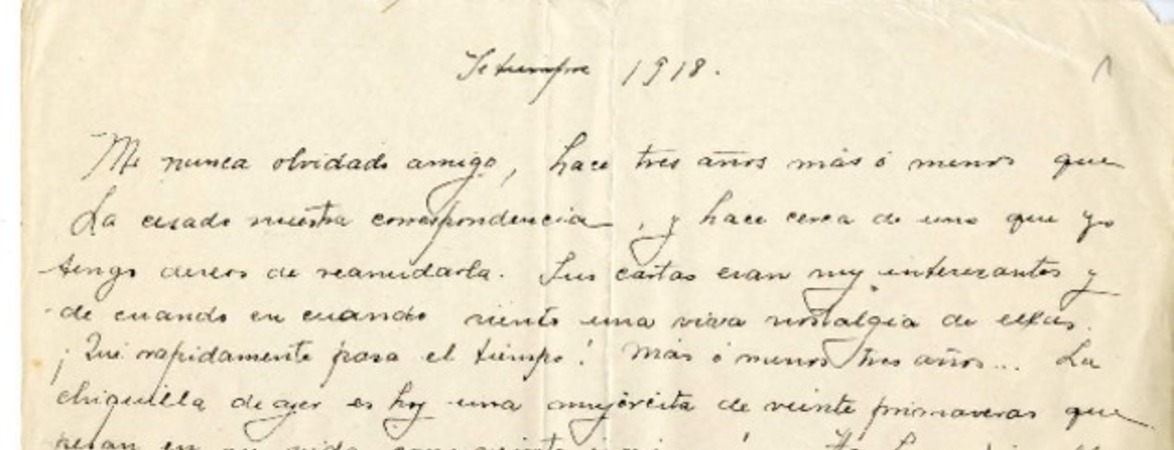 Setiembre 1918.
Mi nunca olvidado amigo, hace tres años más ó menos que
ha cesado nuestra correspondencia, y hace cerca de uno que yo
tengo deseos de reanudarla. Sus cartas eran muy interesantes y
de cuando en cuando siento una viva nostalgia de ellas.
¡Qué rapidamente pasa el tiempo! Más ó menos tres años... La
chiquilla de ayer es hoy una mujercita de veinte primaveras que
pesan en su vida